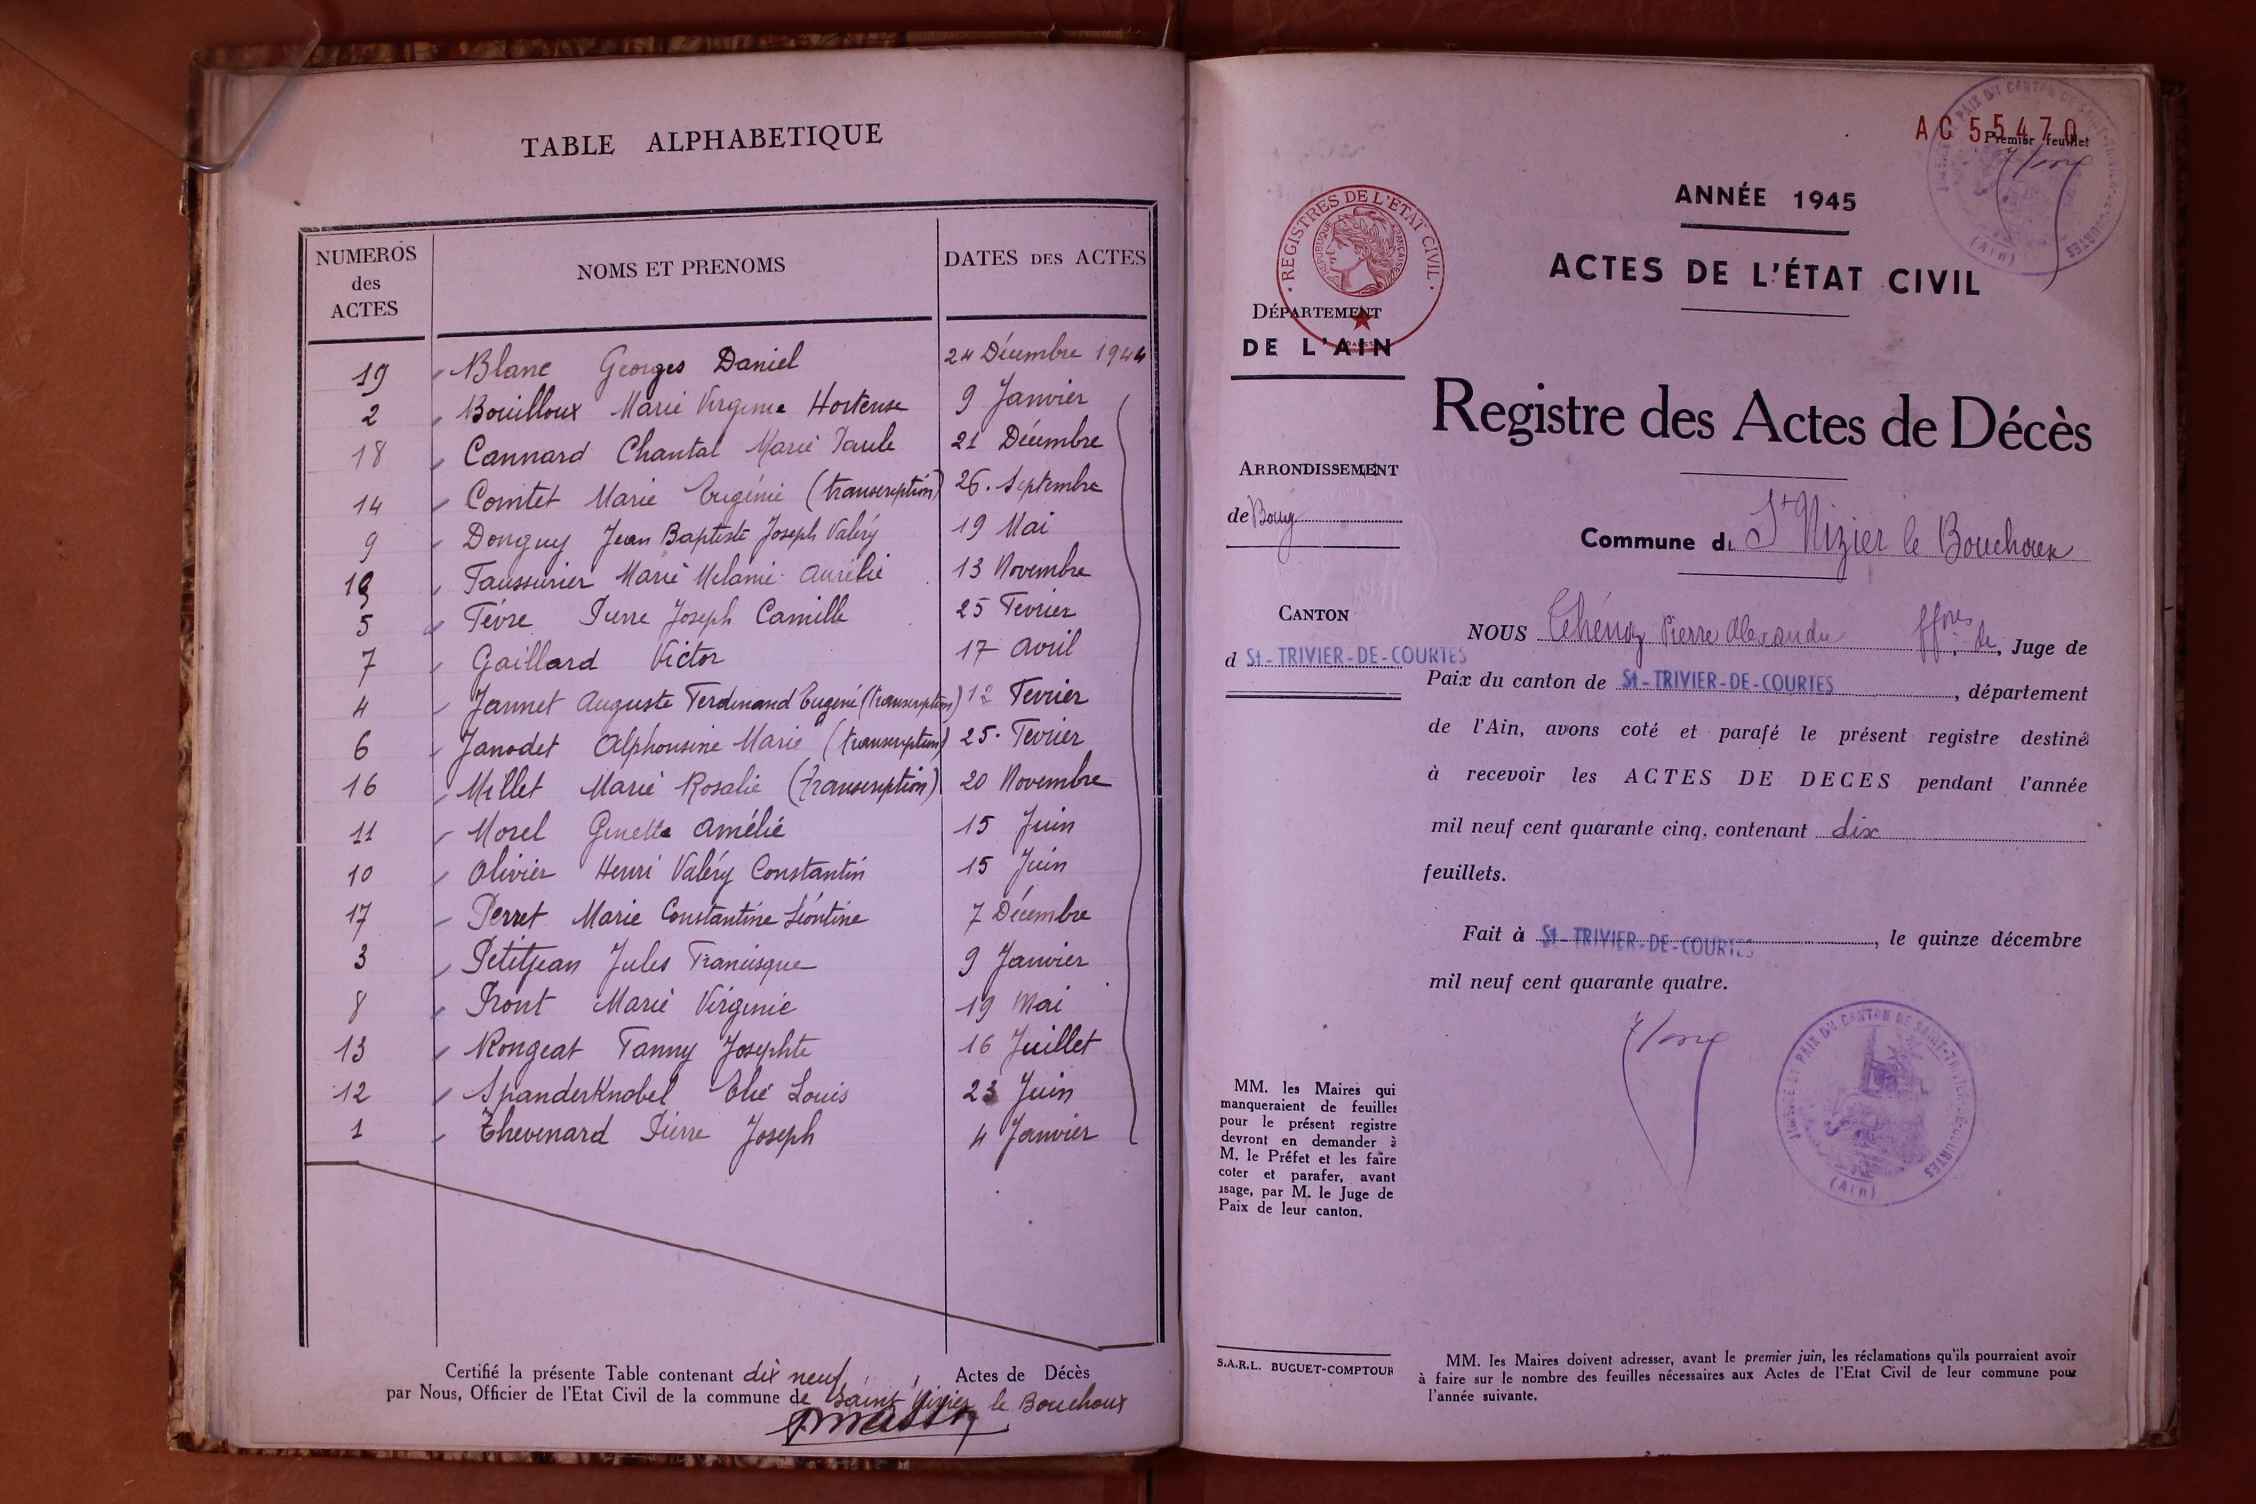 TABLE ALPHABETIQUE
NUMEROS des ACTES NOMS ET PRENOMS DATES DES ACTES
19 Blanc Georges Daniel 24 Décembre 1944
2 Bouilloux Marie Virginie Hortense 9 Janvier
18 Cannard Chantal Marie Paule 21 Décembre
14 Comtet Marie Eugénie (transcription) 26. Septembre
9 Donguy Jean Baptiste Joseph Valéry 19 Mai
Faussurier Marie Mélanie Aurélie 13 Novembre
5 Fèvre Pierre Joseph Camille 25 Fevrier
7 Gaillard Victor 17 Avril
4 Jannet Auguste Ferdinand Eugène (transcription) 12 Fevrier
6 Janodet Alphonsine Marie (transcription) 25. Fevrier
16 Millet Marie Rosalie (transcription) 20 Novembre
11 Morel Ginette Amélie 15 Juin
10 Olivier Henri Valéry Constantin 15 Juin
17 Perret Marie Constantine Léontine 7 Décembre
3 Petitjean Jules Francisque 9 Janvier
8 Pront Marie Virginie 19 Mai
13 Rongeat Fanny Josephte 16 Juillet
12 Spanderknobel Elie Louis 23 Juin
1 Thevenard Pierre Joseph 4 Janvier
Certifié la présente Table contenant dix neuf, Actes de Décès
par Nous, Officier de l'Etat Civil de la commune de Saint Nizier le Bouchoux
AC 55470
Premier feuillet
ANNÉE 1945
ACTES DE L'ÉTAT CIVIL
REGISTRES DE L'ETAT CIVIL
DÉPARTEMENT
DE L'AIN
Registre des Actes de Décès
ARRONDISSEMENT
de Bourg
Commune de St Nizier le Bouchoux
CANTON
d St-TRIVIER-DE-COURTES
NOUS Thénoz Pierre Alexandre ffons de, Juge de
Paix du canton de St-TRIVIER-DE-COURTES, département
de l'Ain, avons coté et parafé le présent registre destiné
à recevoir les ACTES DE DECES pendant l'année
mil neuf cent quarante cinq, contenant dix
feuillets.
Fait à St-TRIVIER-DE-COURTES, le quinze décembre
mil neuf cent quarante quatre.
MM. les Maires qui
manqueraient de feuilles
pour le présent registre
devront en demander à
M. le Préfet et les faire
coter et parafer, avant
usage, par M. le Juge de
Paix de leur canton.
S.A.R.L. BUGUET-COMPTOUR
MM. les Maires doivent adresser, avant le premier juin, les réclamations qu'ils pourraient avoir
à faire sur le nombre des feuilles nécessaires aux Actes de l'Etat Civil de leur commune pour
l'année suivante.